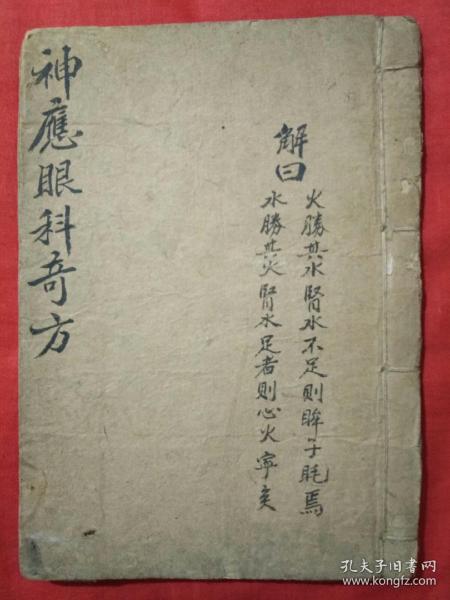 神應眼科奇方
解曰
火勝其水腎水不足則眸子眊焉
水勝其火腎水足者則心火寧矣
孔夫子旧书网
www.kongfz.com